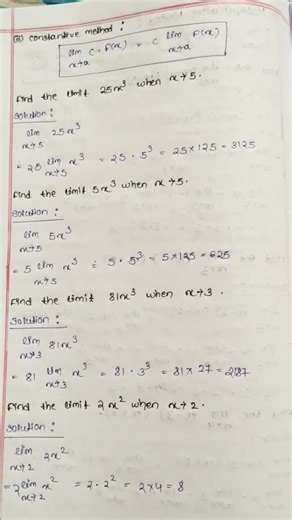 (iii) constantive method :
lim c . f(x) = c lim f(x)
x→a x→a
Find the limit 25x³ when x→5.
solution :
lim 25x³
x→5
= 25 lim x³ = 25 . 5³ = 25 × 125 = 3125
x→5
Find the limit 5x³ when x→5.
solution :
lim 5x³
x→5
= 5 lim x³ = 5 . 5³ = 5 × 125 = 625
x→5
Find the limit 81x³ when x→3.
solution :
lim 81x³
x→3
= 81 lim x³ = 81 . 3³ = 81 × 27 = 2187
x→3
Find the limit 2x² when x→2.
solution :
lim 2x²
x→2
= 2 lim x² = 2 . 2² = 2 × 4 = 8
x→2